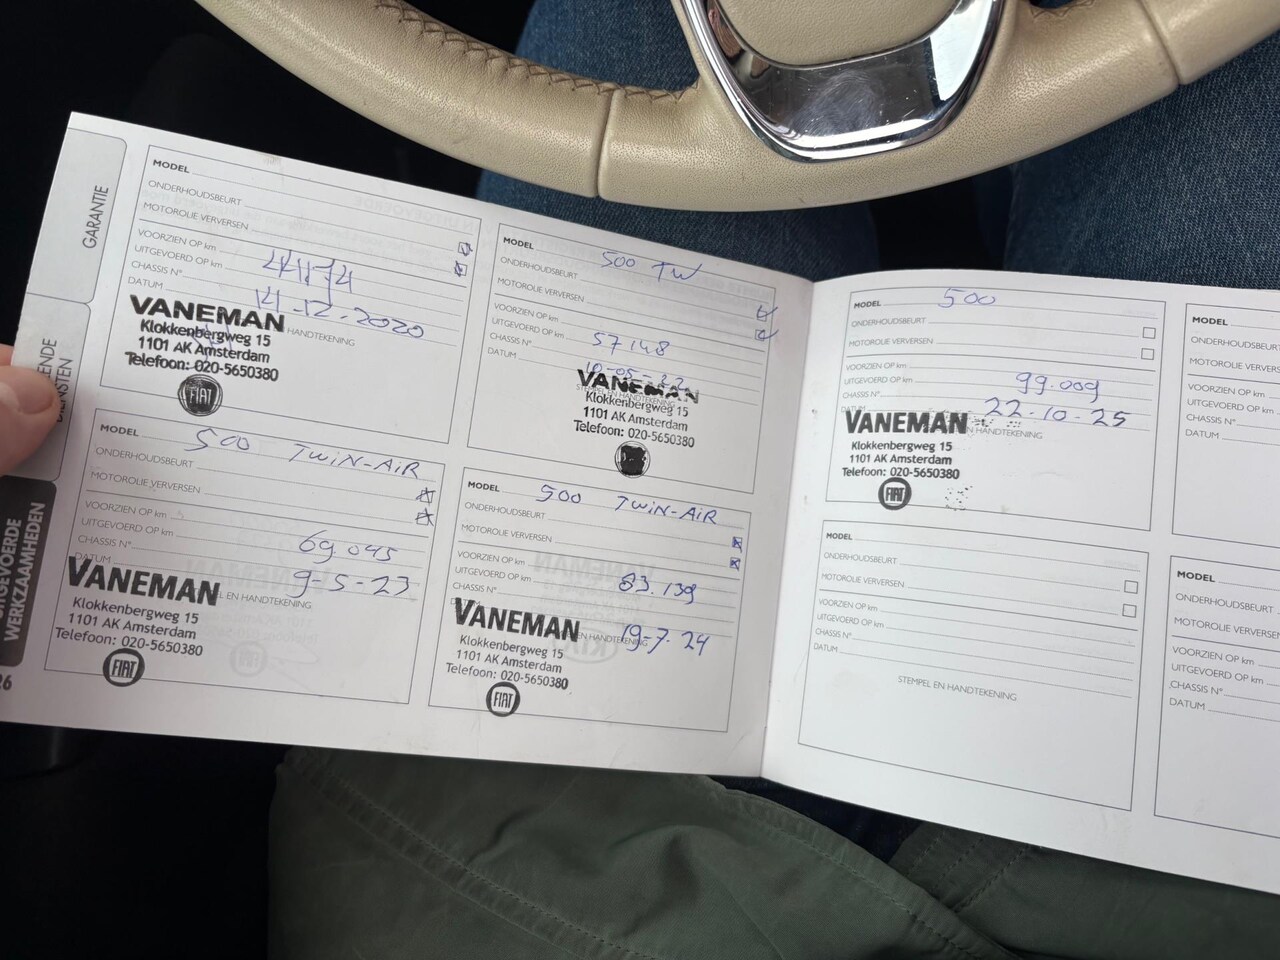 GARANTIE
MODEL
ONDERHOUDSBEURT
MOTOROLIE VERVERSEN
VOORZIEN OP km
UITGEVOERD OP km 44174
CHASSIS N°
DATUM 14-12-2020
HANDTEKENING
VANEMAN
Klokkenbergweg 15
1101 AK Amsterdam
Telefoon: 020-5650380
FIAT
MODEL 500 TW
ONDERHOUDSBEURT
MOTOROLIE VERVERSEN
VOORZIEN OP km
UITGEVOERD OP km 57148
CHASSIS N°
DATUM 10-05-22
VANEMAN
Klokkenbergweg 15
1101 AK Amsterdam
Telefoon: 020-5650380
ENDE
DIENSTEN
UITGEVOERDE
WERKZAAMHEDEN
26
MODEL 500 TWiN-AiR
ONDERHOUDSBEURT
MOTOROLIE VERVERSEN
VOORZIEN OP km
UITGEVOERD OP km 69.045
CHASSIS N°
DATUM 9-5-23
EL EN HANDTEKENING
VANEMAN
Klokkenbergweg 15
1101 AK Amsterdam
Telefoon: 020-5650380
FIAT
MODEL 500 TWiN-AiR
ONDERHOUDSBEURT
MOTOROLIE VERVERSEN
VOORZIEN OP km
UITGEVOERD OP km 83.139
CHASSIS N°
19-7-24
EN HANDTEKENING
VANEMAN
Klokkenbergweg 15
1101 AK Amsterdam
Telefoon: 020-5650380
FIAT
MODEL 500
ONDERHOUDSBEURT
MOTOROLIE VERVERSEN
VOORZIEN OP km
UITGEVOERD OP km 99.009
CHASSIS N°
DATUM 22-10-25
EN HANDTEKENING
VANEMAN
Klokkenbergweg 15
1101 AK Amsterdam
Telefoon: 020-5650380
FIAT
MODEL
ONDERHOUDSBEURT
MOTOROLIE VERVERSEN
VOORZIEN OP km
UITGEVOERD OP km
CHASSIS N°
DATUM
STEMPEL EN HANDTEKENING
MODEL
ONDERHOUDSBEURT
MOTOROLIE VERVERSE
VOORZIEN OP km
UITGEVOERD OP km
CHASSIS N°
DATUM
MODEL
ONDERHOUDSBEURT
MOTOROLIE VERVERSEN
VOORZIEN OP km
UITGEVOERD OP km
CHASSIS N°
DATUM